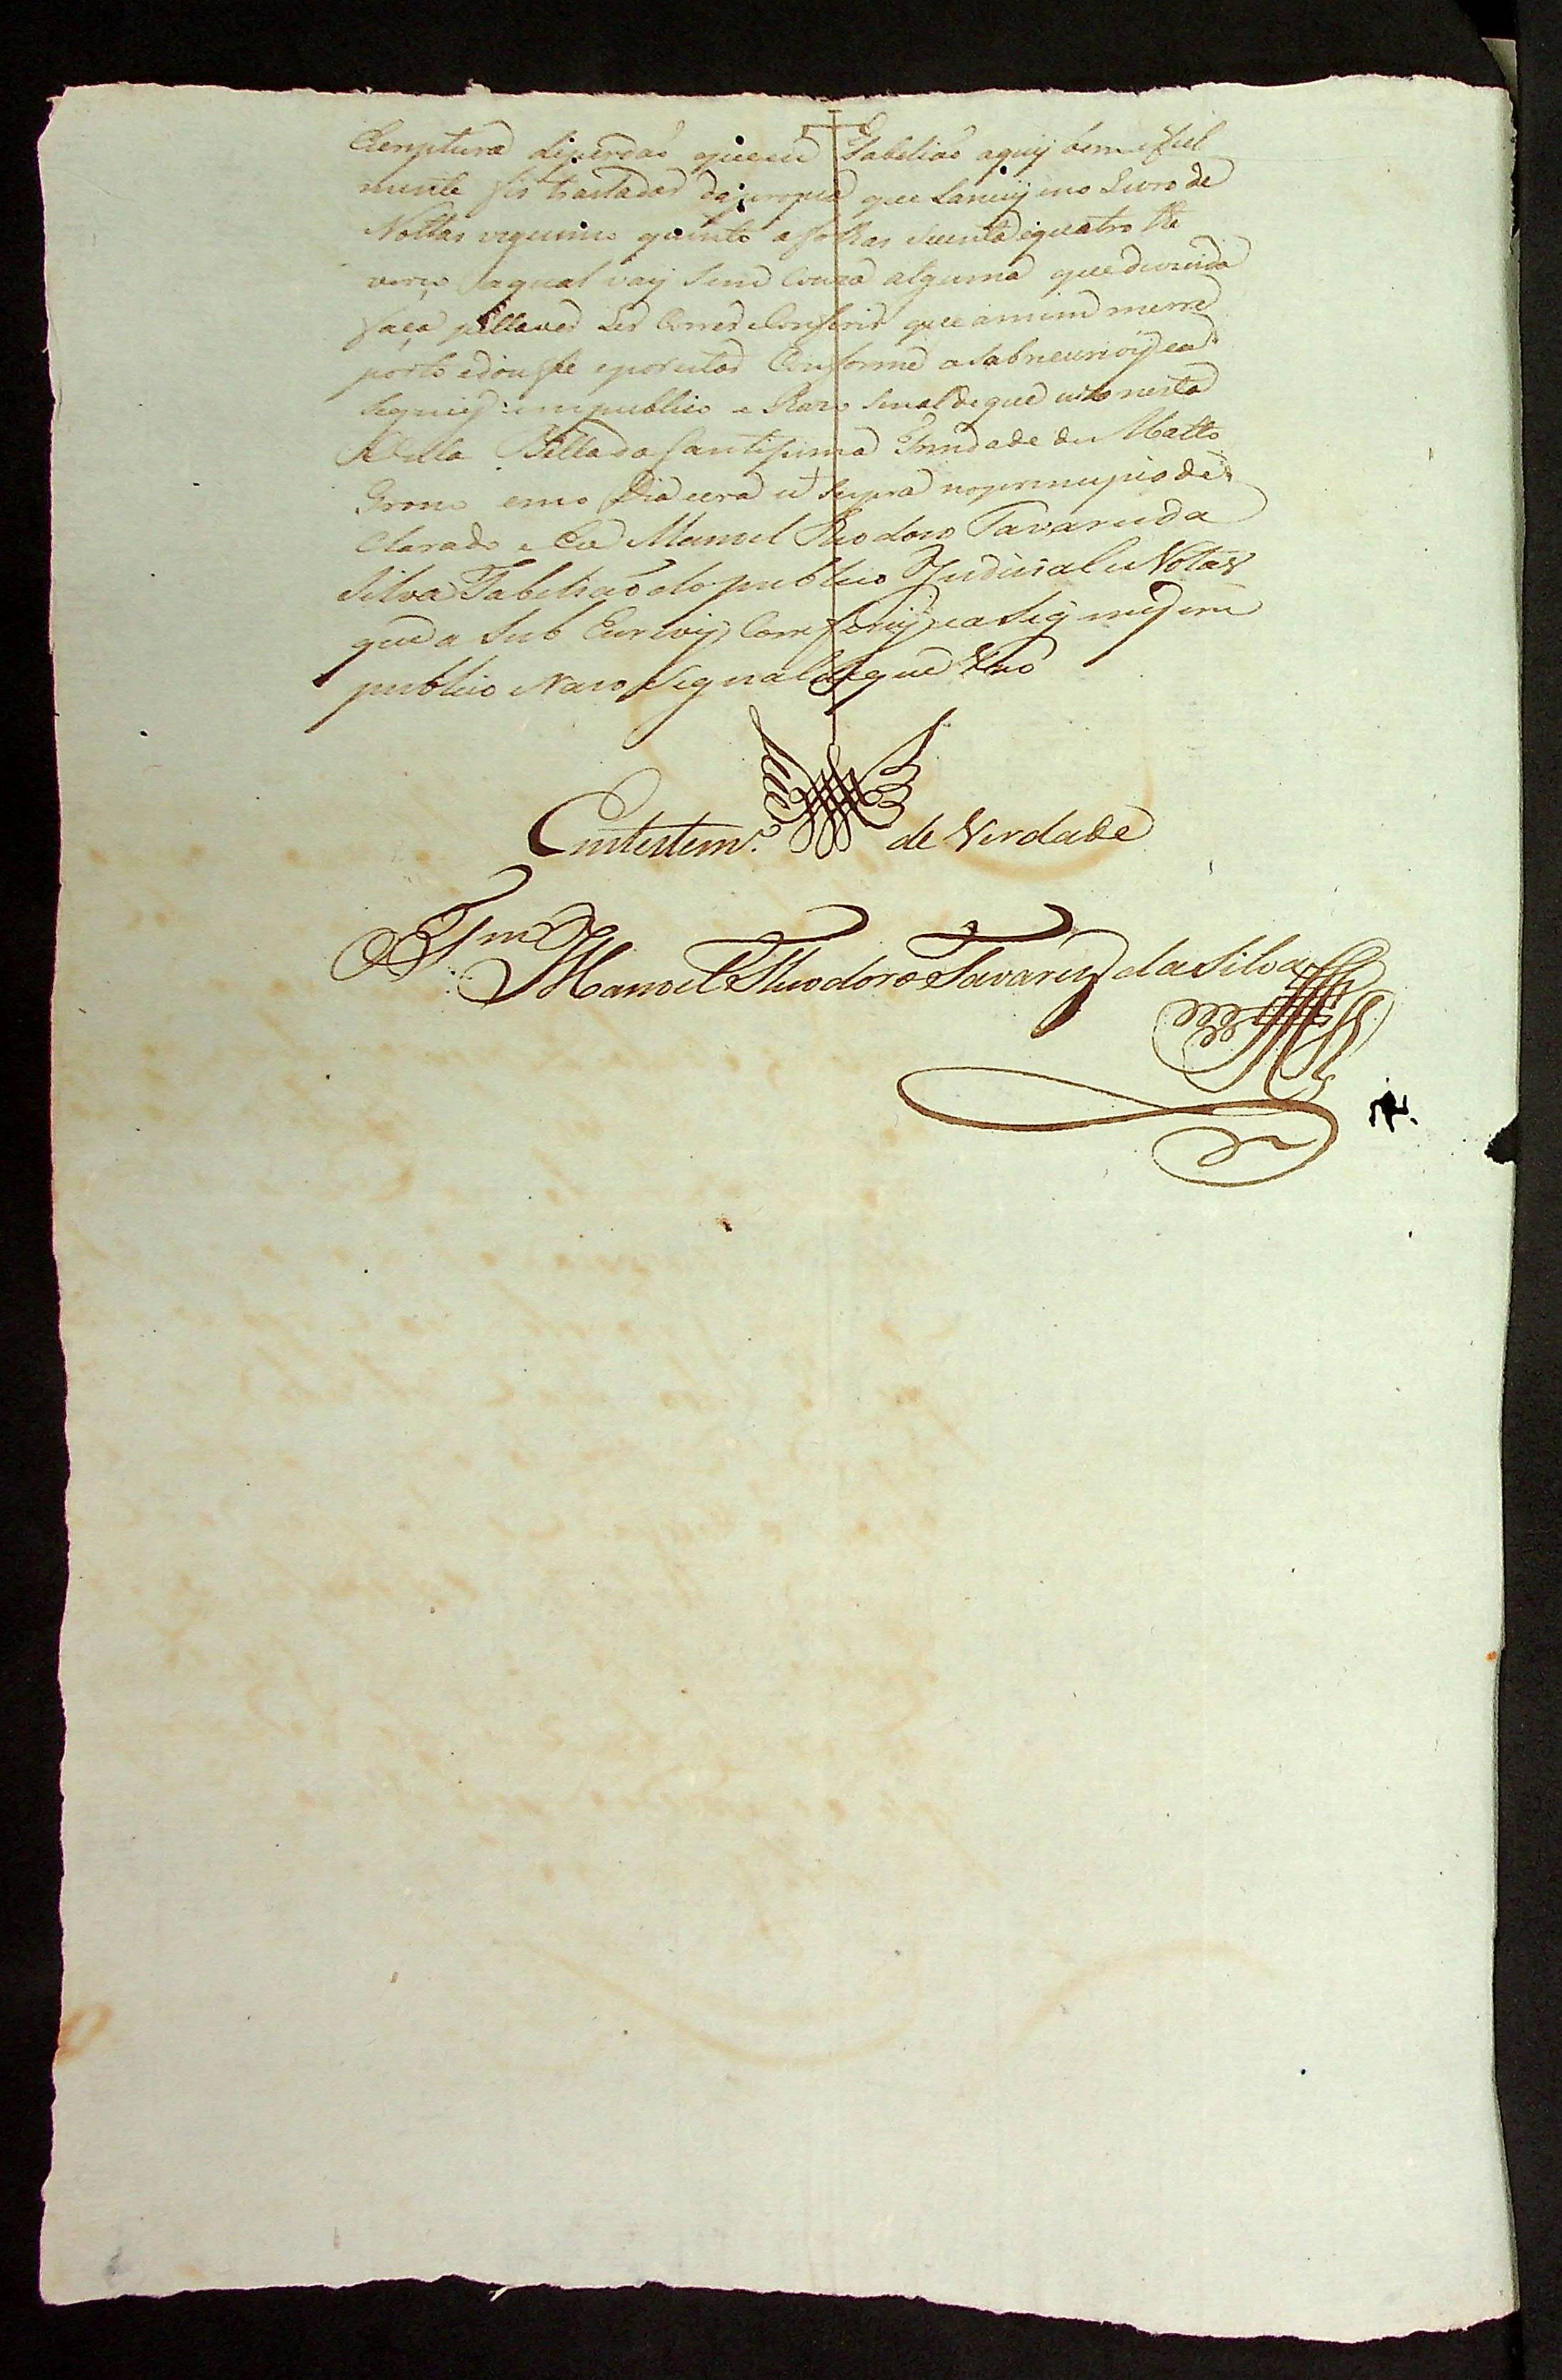 Criptura de perdaõ que eu Tabeliaõ aquy bem e fiel
mente fis trasladar da propia que Lancey no Livro de
Nottas vegecimo quinto a folhas secenta e quatro the
verço a qual vay sem Couza alguma que duvida
faça pella ver Ler Correr e Conferir que a mim me rre
porto e dou fe e por estar Conforme a sobscrevy e a
signey em publico e Razo sinal de que uzo nesta
Villa Bella da Santissima Trindade du Matto
Groço e no Dia e era ut supra no principio de
clarado e Eu Manoel Theodoro Tavares da
Silva Tabeliaõ do publico Judicial e Notas
que a sub Escrevy, Comfery, e a Signey em
publico e Razo Signal de que Uzo
Em testem.º de Verdade
Manoel Theodoro Tavares da Silva